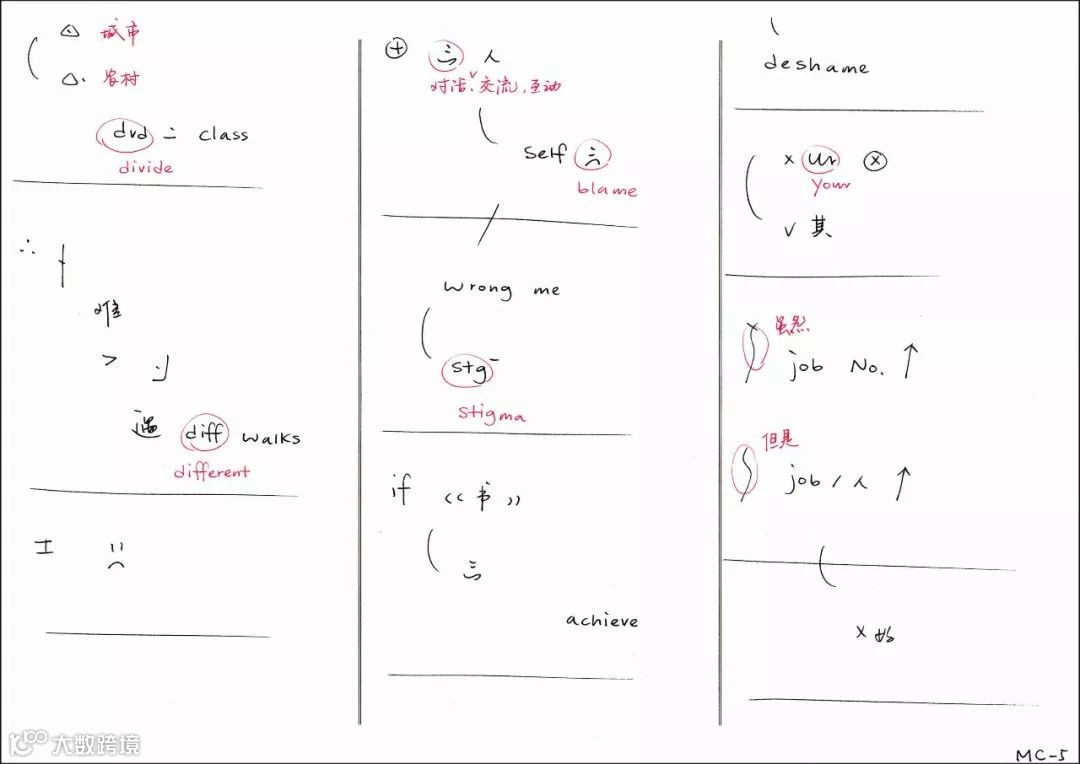 城市
农村
dvd = class
divide
∴
难
>
遇 diff walks
different
工
⊕ 言 人
对话、交流,互动
self 言
blame
wrong me
stg
stigma
if 《书》
言
achieve
deshame
× ur ⊗
your
√ 其
虽然
job No. ↑
但是
job / 人 ↑
×
大数跨境
MC-5